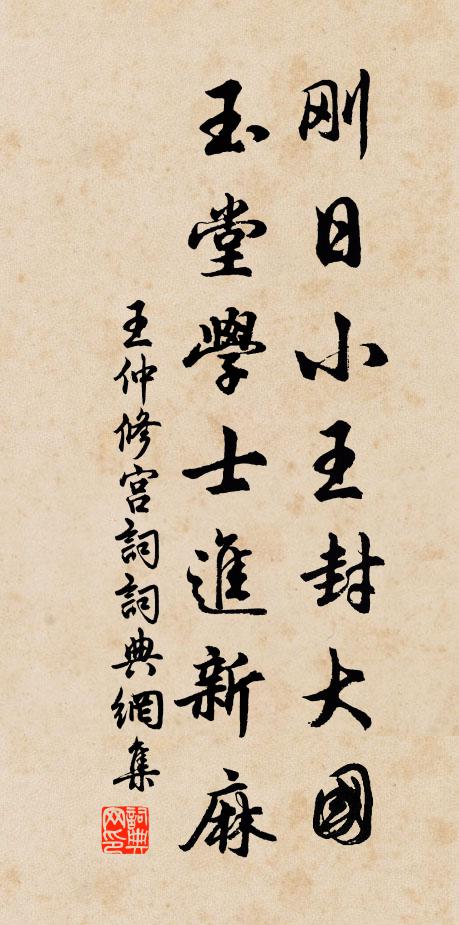 刚日小王封大國
玉堂學士進新麻
王仲修宫詞詞典網集
詞典
网印